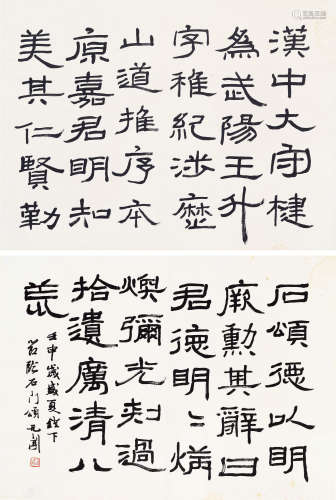 漢中大守楗
為武陽王升
字稚紀涉歷
山道推序本
原嘉君明知
美其仁賢勒
石頌德以明
厥勳其辭曰
君德明〻炳
煥彌光刺過
拾遺厲清八
荒
壬申歲盛夏燈下
節臨石門頌